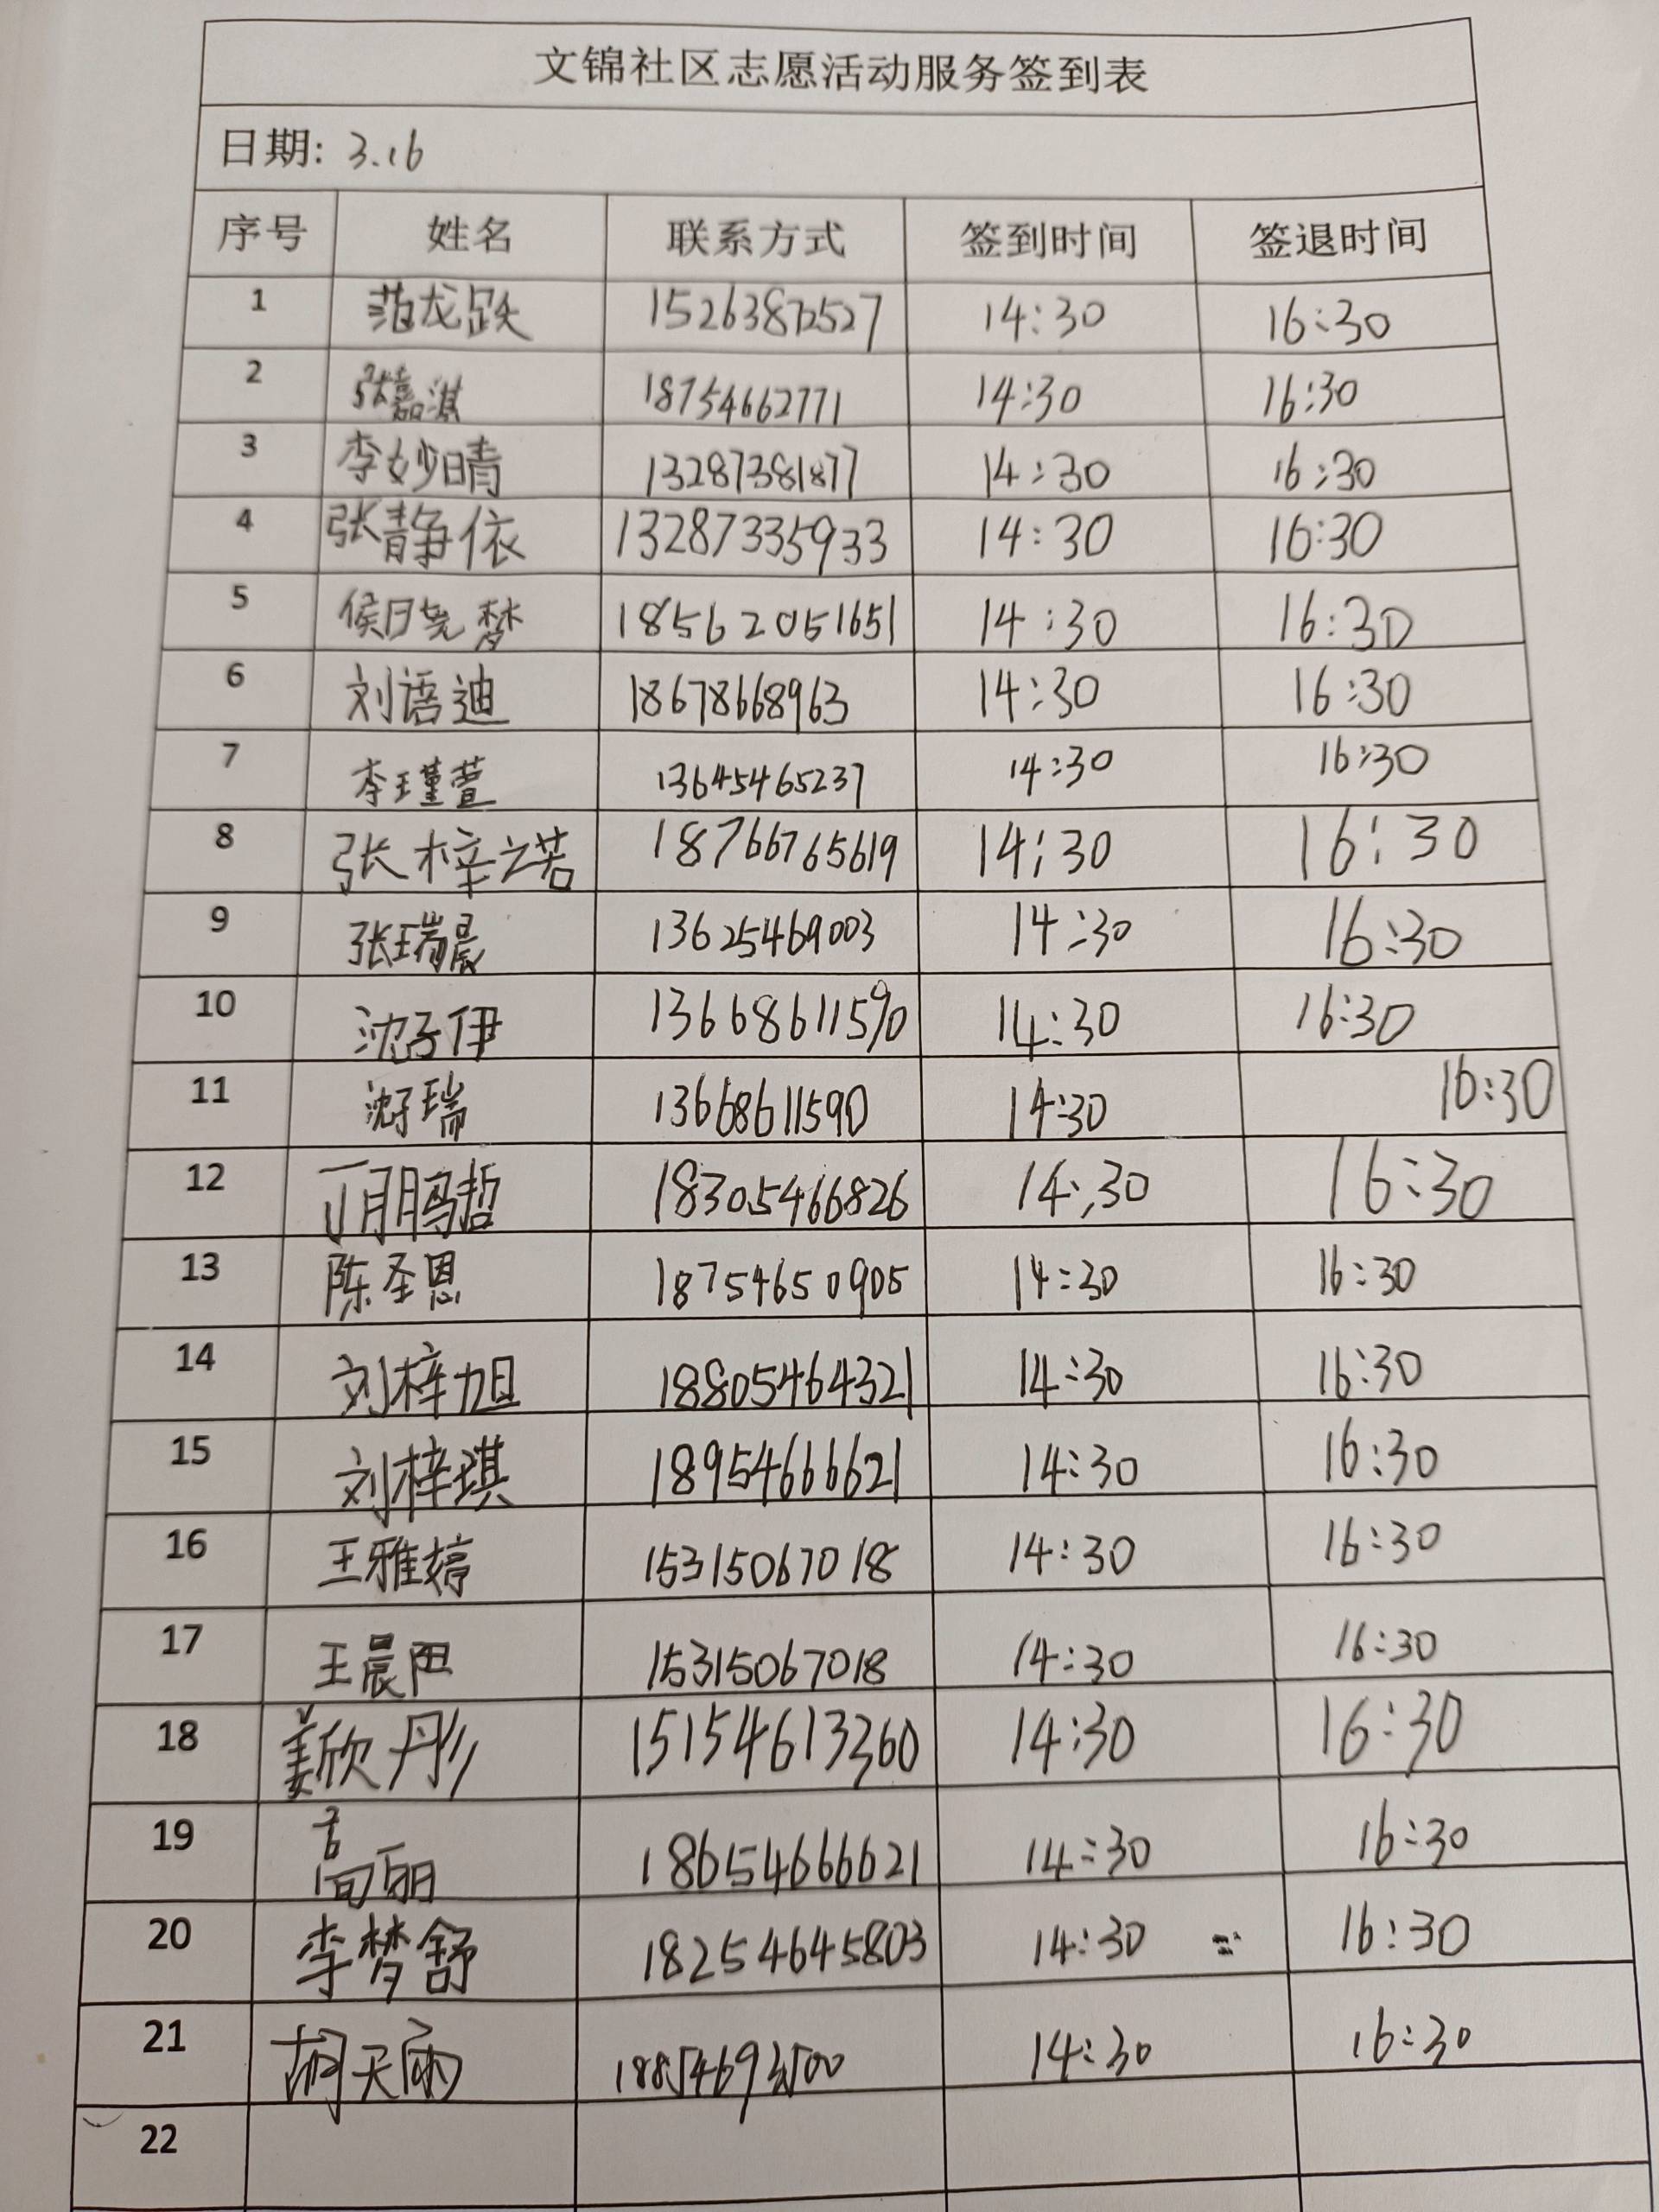 文锦社区志愿活动服务签到表
日期: 3.16
序号 姓名 联系方式 签到时间 签退时间
1 范龙跃 15263872527 14:30 16:30
2 张嘉淇 18754662771 14:30 16:30
3 李妙晴 13287381877 14:30 16:30
4 张静依 13287335933 14:30 16:30
5 侯晓梦 18562051651 14:30 16:30
6 刘语迪 18678668963 14:30 16:30
7 李瑾萱 13645465237 14:30 16:30
8 张梓诺 18766765619 14:30 16:30
9 张瑞晨 13625469003 14:30 16:30
10 沈子伊 13668611590 14:30 16:30
11 沈子瑞 13668611590 14:30 16:30
12 丁鹏哲 18305466826 14:30 16:30
13 陈圣恩 18754650905 14:30 16:30
14 刘梓旭 18805464321 14:30 16:30
15 刘梓琪 18954666621 14:30 16:30
16 王雅婷 15315067018 14:30 16:30
17 王晨阳 15315067018 14:30 16:30
18 姜欣彤 15154613360 14:30 16:30
19 18654666621 14:30 16:30
20 李梦舒 18254645803 14:30 16:30
21 胡天雨 14:30 16:30
22